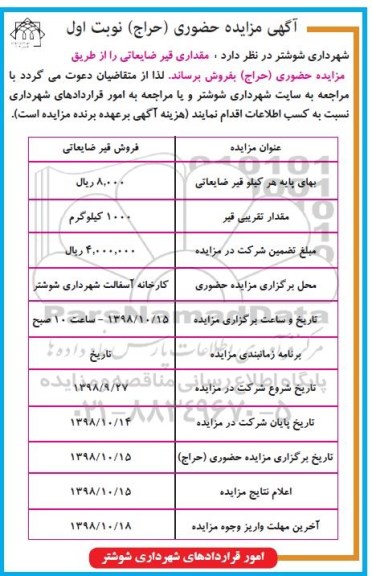 آگهی مزایده حضوری (حراج) نوبت اول
شهرداری شوشتر در نظر دارد ، مقداری قیر ضایعاتی را از طریق
مزایده حضوری (حراج) بفروش برساند. لذا از متقاضیان دعوت می گردد با
مراجعه به سایت شهرداری شوشتر و یا مراجعه به امور قراردادهای شهرداری
نسبت به کسب اطلاعات اقدام نمایند (هزینه آگهی برعهده برنده مزایده است).
عنوان مزایده فروش قیر ضایعاتی
بهای پایه هر کیلو قیر ضایعاتی ۸,۰۰۰ ریال
مقدار تقریبی قیر ۱۰۰۰ کیلوگرم
مبلغ تضمین شرکت در مزایده ۴,۰۰۰,۰۰۰ ریال
محل برگزاری مزایده حضوری کارخانه آسفالت شهرداری شوشتر
تاریخ و ساعت برگزاری مزایده ۱۳۹۸/۱۰/۱۵ - ساعت ۱۰ صبح
برنامه زمانبندی مزایده تاریخ
تاریخ شروع شرکت در مزایده ۱۳۹۸/۹/۲۷
تاریخ پایان شرکت در مزایده ۱۳۹۸/۱۰/۱۴
تاریخ برگزاری مزایده حضوری (حراج) ۱۳۹۸/۱۰/۱۵
اعلام نتایج مزایده ۱۳۹۸/۱۰/۱۵
آخرین مهلت واریز وجوه مزایده ۱۳۹۸/۱۰/۱۸
امور قراردادهای شهرداری شوشتر
ParsNamadData
پایگاه اطلاع رسانی مناقصه و مزایده
۰۲۱-۸۸۳۴۹۶۷۰-۵